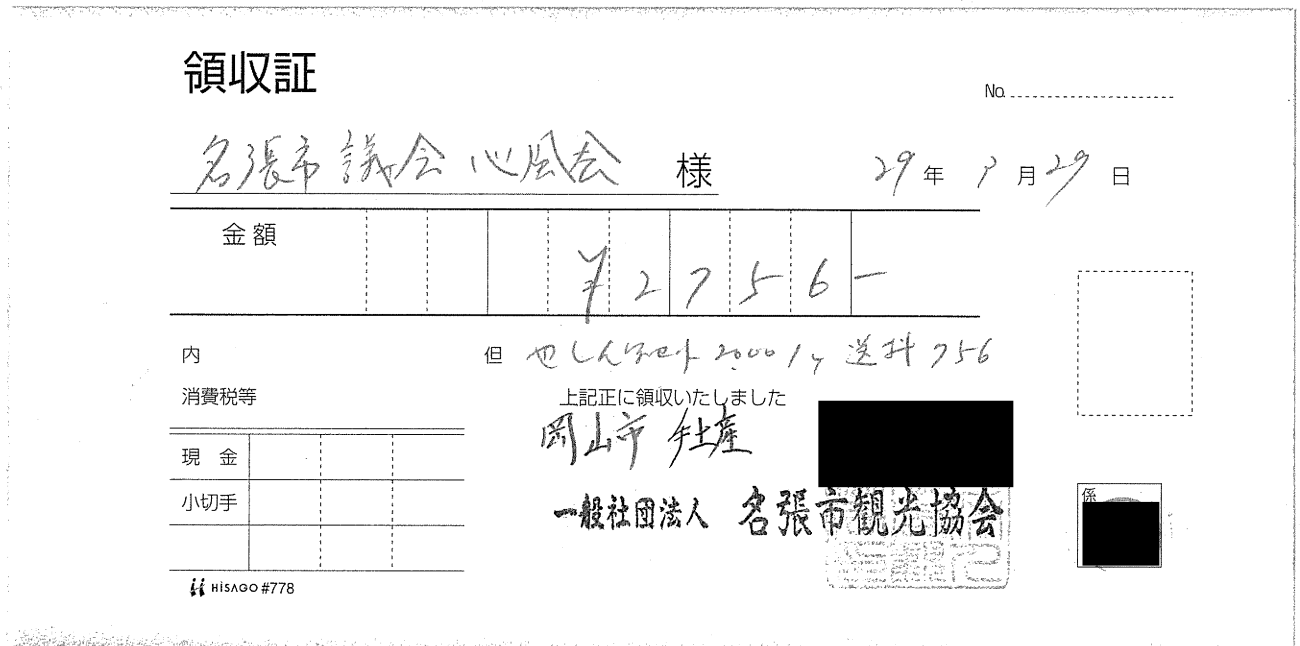 領収証
No.
名張市議会 心風会 様 29年 9月 29日
金額 ¥2756-
内 但 せしんびセット 2000/ 送料 756
消費税等 上記正に領収いたしました
岡山市 手土産
現金
小切手
一般社団法人 名張市観光協会
係
HISAGO #778